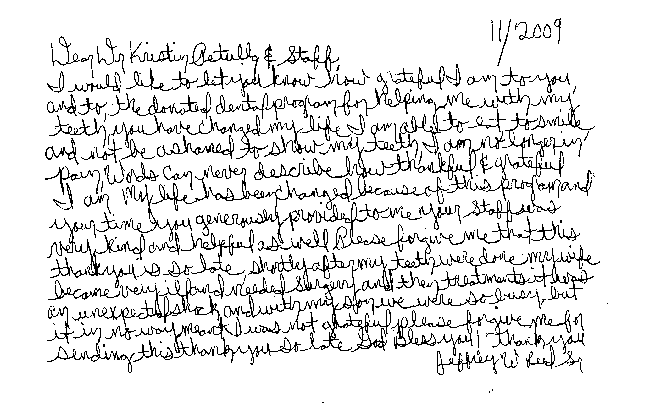 11/2009
Dear Dr Kristin & Staff,
I would like to let you know how grateful I am to you
and to the donated dental program for helping me with my
teeth you have changed my life I am able to eat to smile
and not be ashamed to show my teeth I am no longer in
pain, Words can never describe how thankful & grateful
I am My life has been changed because of this program and
your time you generously provided to me your staff was
very kind and helpful as well Please forgive me that this
thank you is so late, shortly after my teeth were done my wife
became very ill and needed surgery and then treatments it was
an unexpected shock and with my son we were so busy but
it in no way meant I was not grateful please forgive me for
sending this thank you so late God Bless you! thank you
Jeffrey W Sr